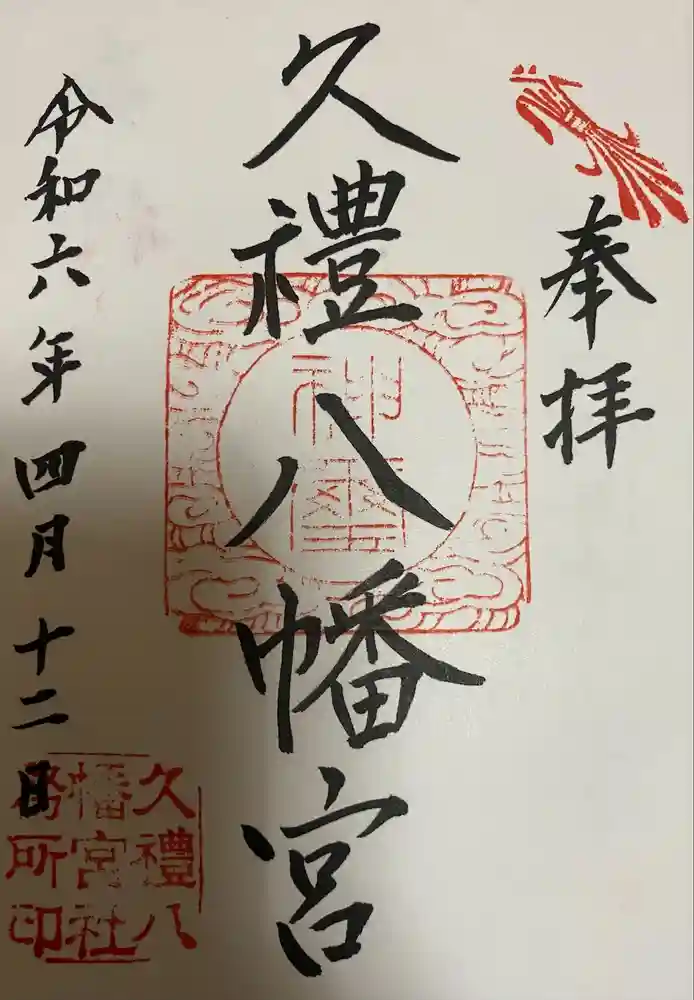 奉拝
久禮八幡宮
神璽
令和六年四月十二日
久禮八
幡宮社
務所印